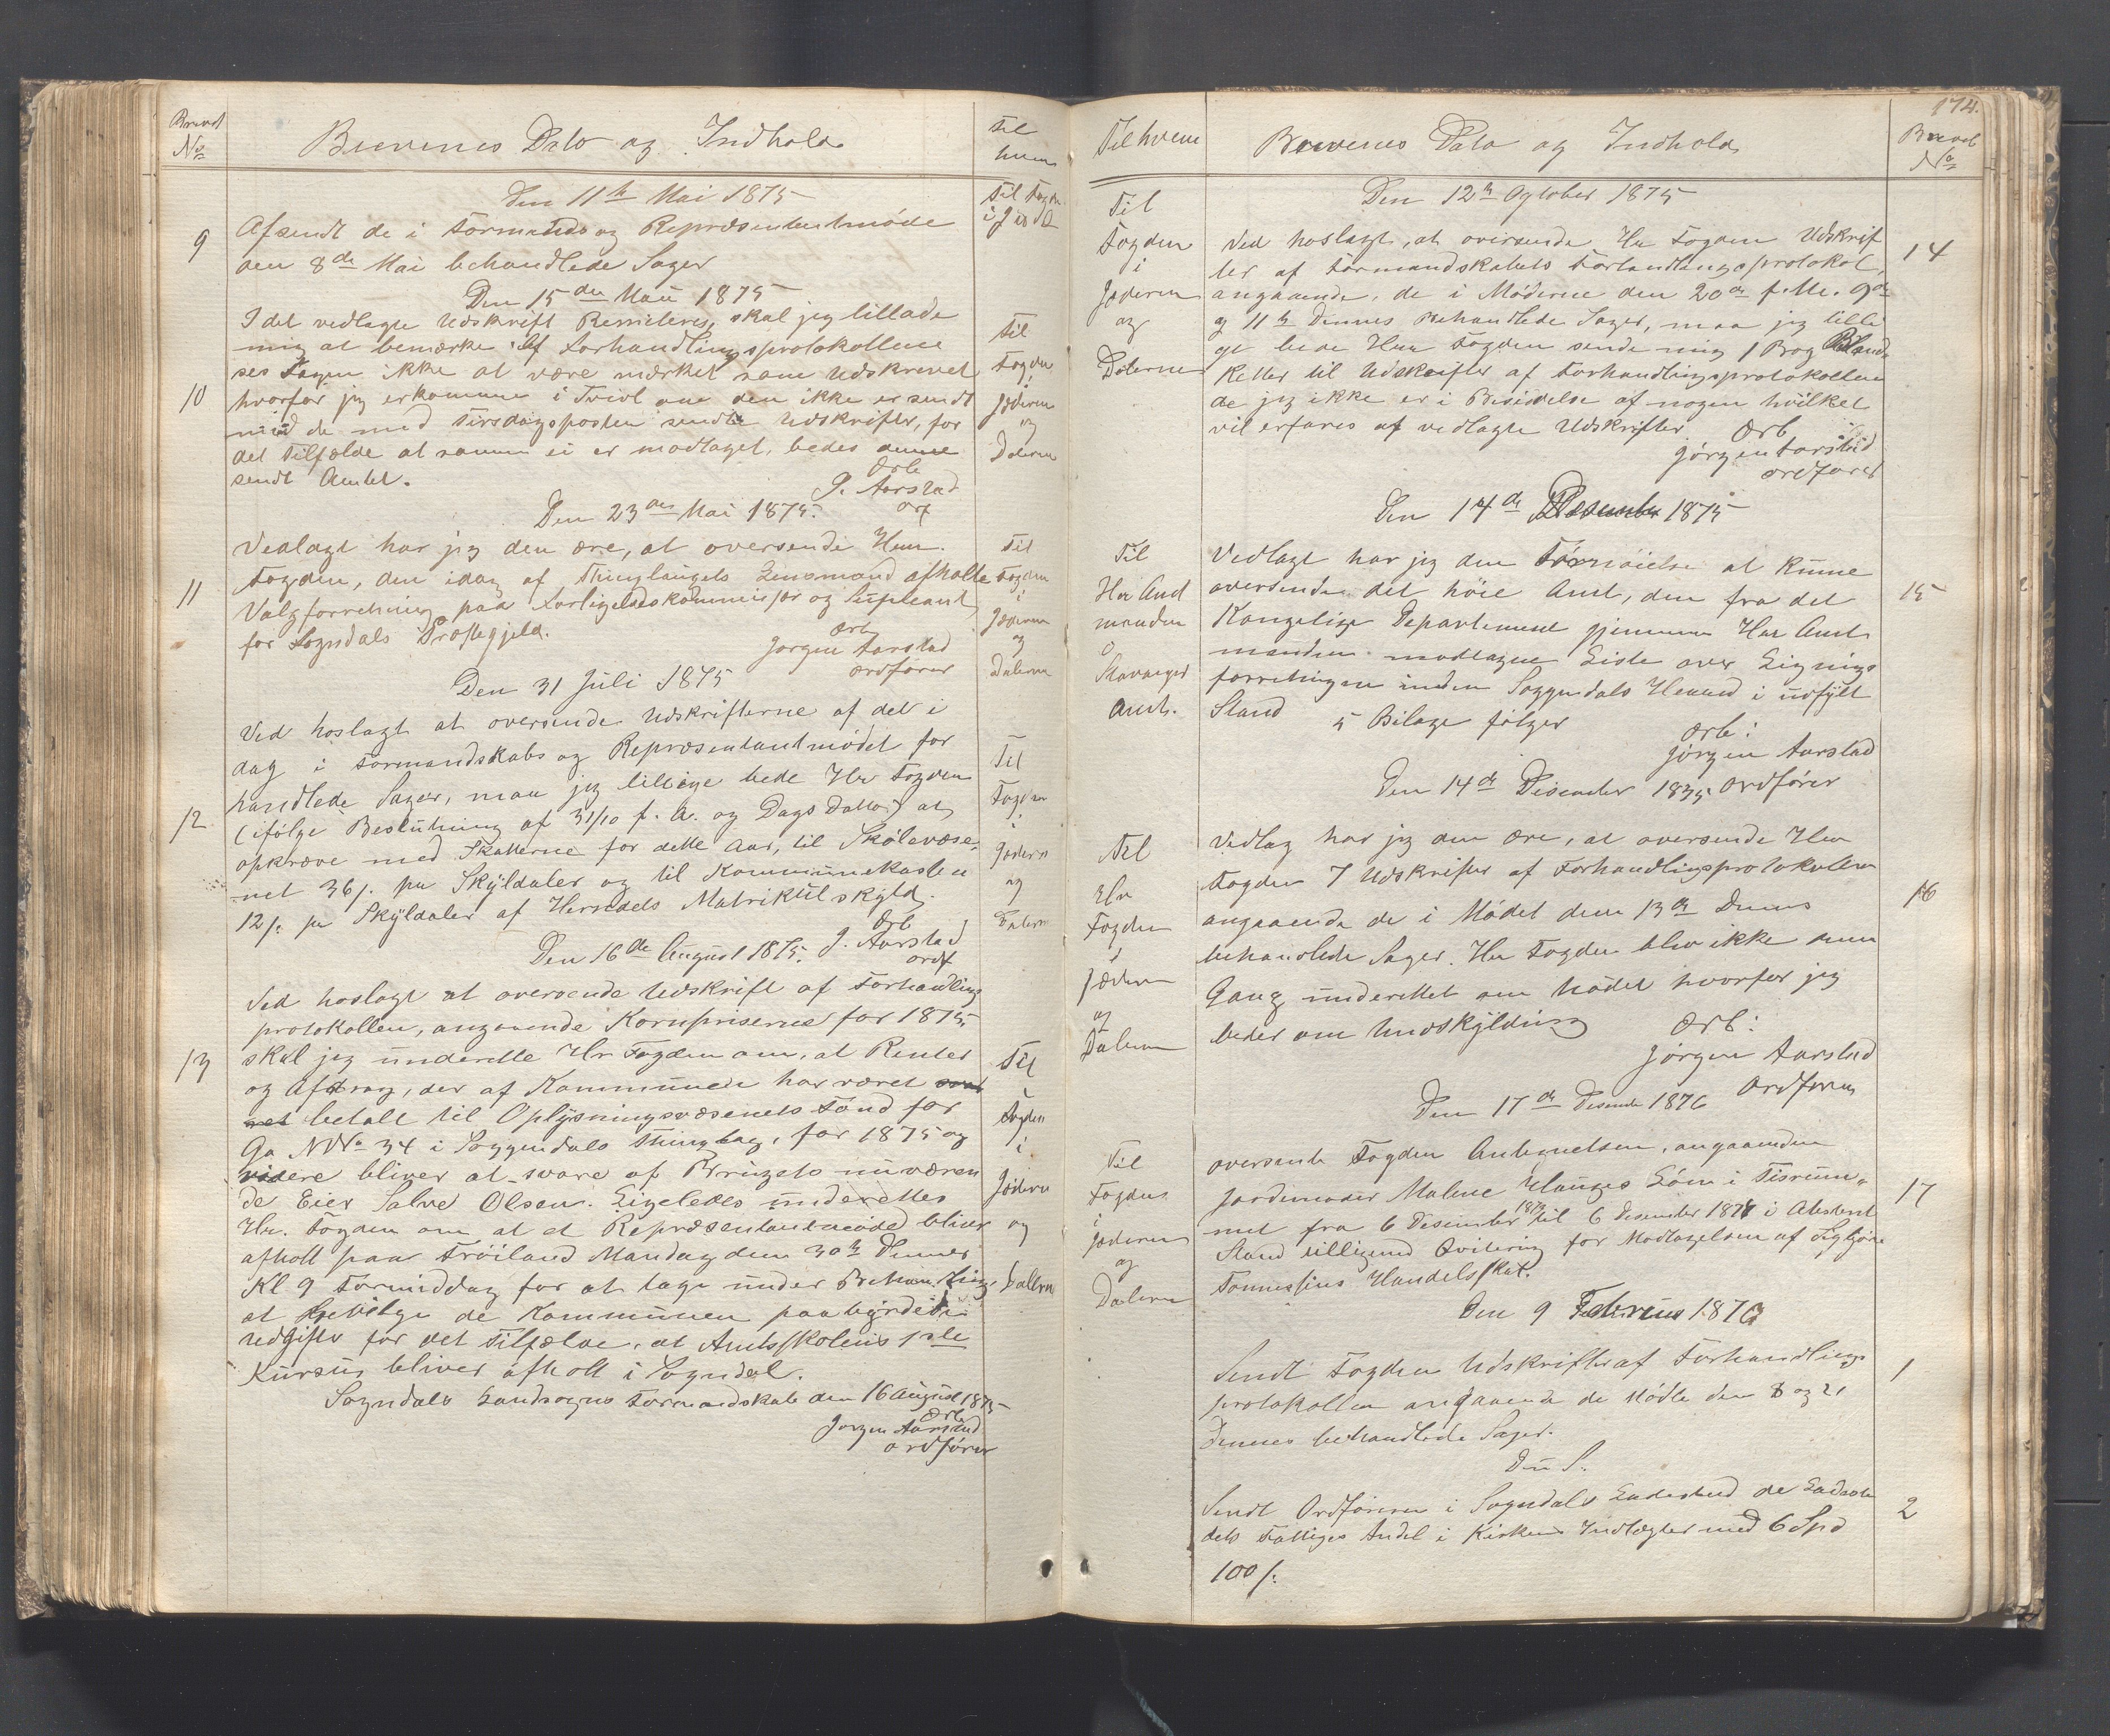 Brevets
No
Brevenes Dato og Indhold
Til
hvem
Den 11te Mai 1875
9
Afsendt de i Formands og Repræsentantmøde
den 8de Mai behandlede Sager
Til Fogden
Den 15den Mai 1875
10
I det vedlagte Udskrift Remiteres, skal jeg tillade
mig at bemærke at Forhandlingsprotokollene
sees Sagen ikke at være mærket som Udskrevet
hvorfor jeg er kommen i Tvivl om den ikke er sendt
med de med Tirsdagsposten sendte Udskrifter, for
det Tilfælde at samme ei er modtaget, bedes denne
sendt Amtet.
Ærb
J. Aarstad
Orf
Til
Fogden
i
Jæderen
og
Dalerne
Den 23de Mai 1875.
11
Vedlagt har jeg den ære, at oversende Herr
Fogden, den idag af Thinglaugets Lensmand afholte
Valgforretning paa Forligelseskommisær og Supleant
for Sogndals Præstegjeld.
Ærb
Jørgen Aarstad
ordfører
Til
Fogden
i
Jæderen
og
Dalerne
Den 31 Juli 1875
12
Ved hoslagt at oversende Udskrifterne af det i
dag i Formandskabs og Repræsentantmødet for
handlede Sager, maa jeg tillige bede Hr Fogden
(ifølge Beslutning af 31/10 f. A. og Dags Datto) at
opkræve med Skatterne for dette Aar, til Skolevæse-
net 36 s. pr Skyldaler og til Kommunekassen
12 s. pr Skyldaler af Herredets Matrikulskyld.
Ærb
J. Aarstad
ordf
Til
Fogden
i
Jæderen
og
Dalerne
Den 16de August 1875.
13
Ved hoslagt at oversende Udskrift af Forhandlings
protokollen, angaaende Kornpriserne for 1875,
skal jeg underette Hr Fogden om, at Renter
og Afdrag, der af Kommunen har været
betalt til Oplysningsvæsenets Fond for
Ga No 34 i Soggendals Thinglag, for 1875 og
videre bliver at svare af Brugets nuværen
de Eier Salve Olsen. Ligeledes underettes
Hr. Fogden om at et Repræsentantmøde bliver
afholt paa Frøiland Mandag den 30te Dennes
Kl 9 Formiddag for at tage under Behandling,
at bevilge de Kommunen paabyrdede
Udgifter for det Tilfælde, at Amtsskolens 1ste
Kursus bliver afholt i Sogndal.
Sogndals Landsogns Formandskab den 16 August 1875
Ærb
Jørgen Aarstad
ordfører
Til
Fogden
i
Jæderen
og
Dalerne
174.
Til hvem
Brevenes Dato og Indhold
Brevets
No
Den 12te October 1875
Til
Fogden
i
Jæderen
og
Dalerne
Ved hoslagt, at oversende Hr Fogden Udskrif
ter af Formandskabets Forhandlingsprotokol,
angaaende, de i Møderne den 20de f. M. 9de
og 11te Dennes Behandlede Sager, maa jeg tilli
ge bede Herr Fogden sende mig 1 Bog Blan
ketter til Udskrifter af Forhandlingsprotokollen
de jeg ikke er i Besiddelse af nogen hvilket
vil erfares af vedlagte Udskrifter
Ærb
Jørgen Aarstad
ordfører
14
Den 14de Desember 1875
Til
Hr Amt
manden
i
Stavanger
Amt.
Vedlagt har jeg den Fornøielse at kunne
oversende det høie Amt, den fra det
Kongelige Departement gjennem Herr Amt
manden modtagne Liste over Lignings
forretningen inden Soggendals Herred i udfylt
Stand
5 Bilage følger
Ærb:
Jørgen Aarstad
Ordfører
15
Den 14de Desember 1875
Til
Hr
Fogden
i
Jæderen
og
Dalerne
Vedlag har jeg den ære, at oversende Herr
Fogden 7 Udskrifter af Forhandlingsprotokollen
angaaende de i Mødet den 13de Dennes
behandlede Sager. Hr Fogden blev ikke denne
Gang underettet om Mødet hvorfor jeg
beder om Undskyldning
Ærb:
Jørgen Aarstad
Ordføren
16
Den 17de Desember 1876
Til
Fogden
i
Jæderen
og
Dalerne
oversente Fogden Antegnelsen, angaaenden
Jordemoder Malene Hauges Løn i Tisrum-
met fra 6 Desember 1874 til 6 Desember 1878 i Atesteret
Stand tilligemed Qvitering for Modtagelsen af
Tønnesens Handelsskat.
17
Den 9 Februar 1876
Sendt Fogden Udskrifter af Forhandlings
protokollen angaaende de Møde den 8 og 21
Dennes behandlede Sager.
1
Du S.
Sendt Ordføreren i Sogndals Ladested de Ladeste
dets Fattiges Andel i Kirkens Indtægter med 6 Spd
100 s.
2